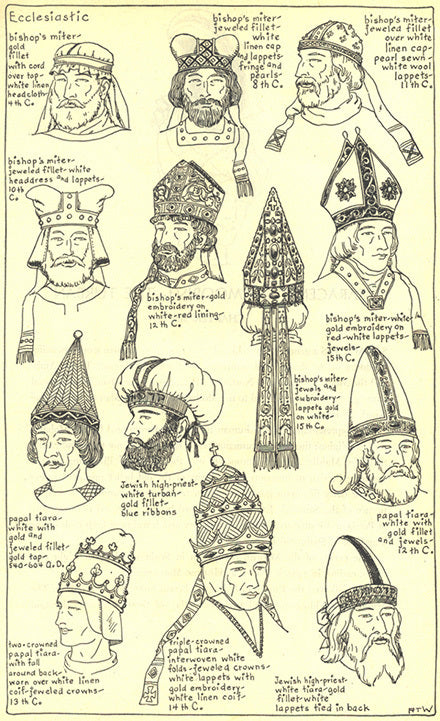 Ecclesiastic
bishop's miter-
gold
fillet
with cord
over top-
white linen
headcloth-
4th C.
bishop's miter-
jeweled fillet-
white
linen cap
and lappets-
fringe and
pearls-
8th C.
bishop's miter-
jeweled fillet
over white
linen cap-
pearl sewn-
white wool
lappets-
11th C.
bishop's miter-
jeweled fillet-white
headdress and lappets-
10th
C.
bishop's miter-gold
embroidery on
white-red lining-
12th C.
bishop's miter-
jewels and
embroidery-
lappets gold
on white-
15th C.
bishop's miter-white-
gold embroidery on
red-white lappets-
jewels-
15th C.
papal tiara-
white with
gold and
jeweled fillet-
gold top-
540-604 A.D.
Jewish high-priest-
white turban-
gold fillet-
blue ribbons
papal tiara-
white with
gold fillet
and jewels-
12th C.
two-crowned
papal tiara-
with fall
around back-
worn over white linen
coif-jeweled crowns-
13th C.
triple-crowned
papal tiara-
interwoven white
folds-jeweled crowns-
white lappets with
gold embroidery-
white linen coif-
14th C.
Jewish high-priest-
white tiara-gold
fillet-white
lappets tied in back
RTW